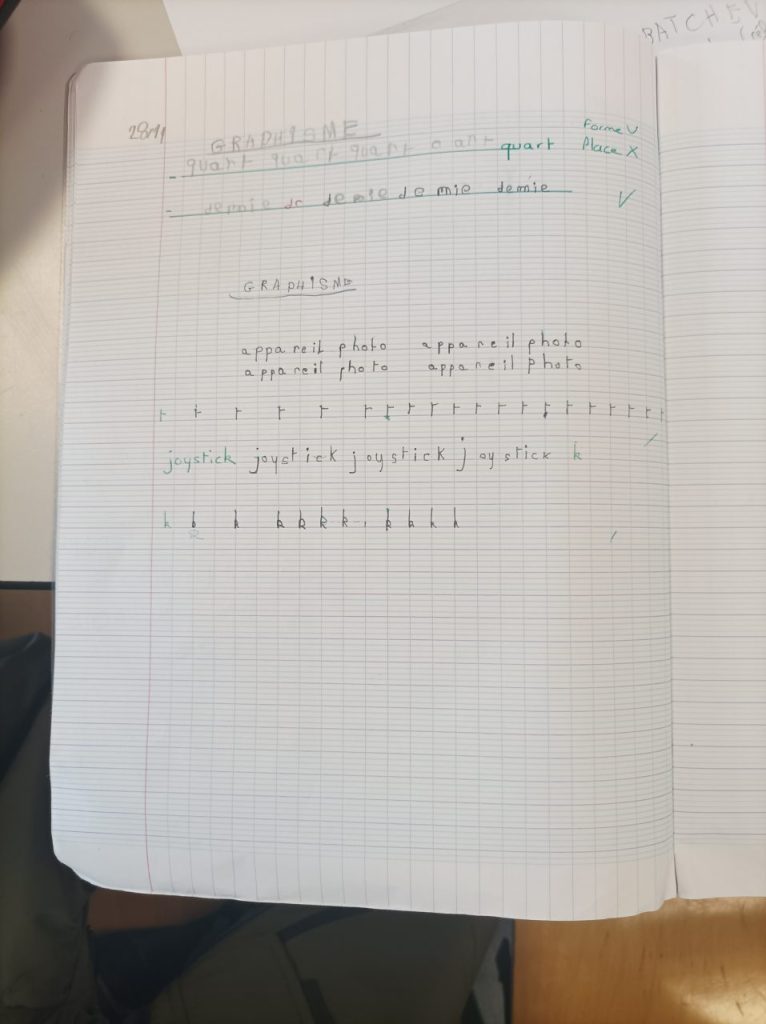 BATCHEV
28/11
GRAPHISME
- quart quart quart quart quart
Forme V
Place X
- demie de demie demie demie
V
GRAPHISME
appareil photo appareil photo
appareil photo appareil photo
joystick joystick joystick joystick k
k k k k k k k k k k k